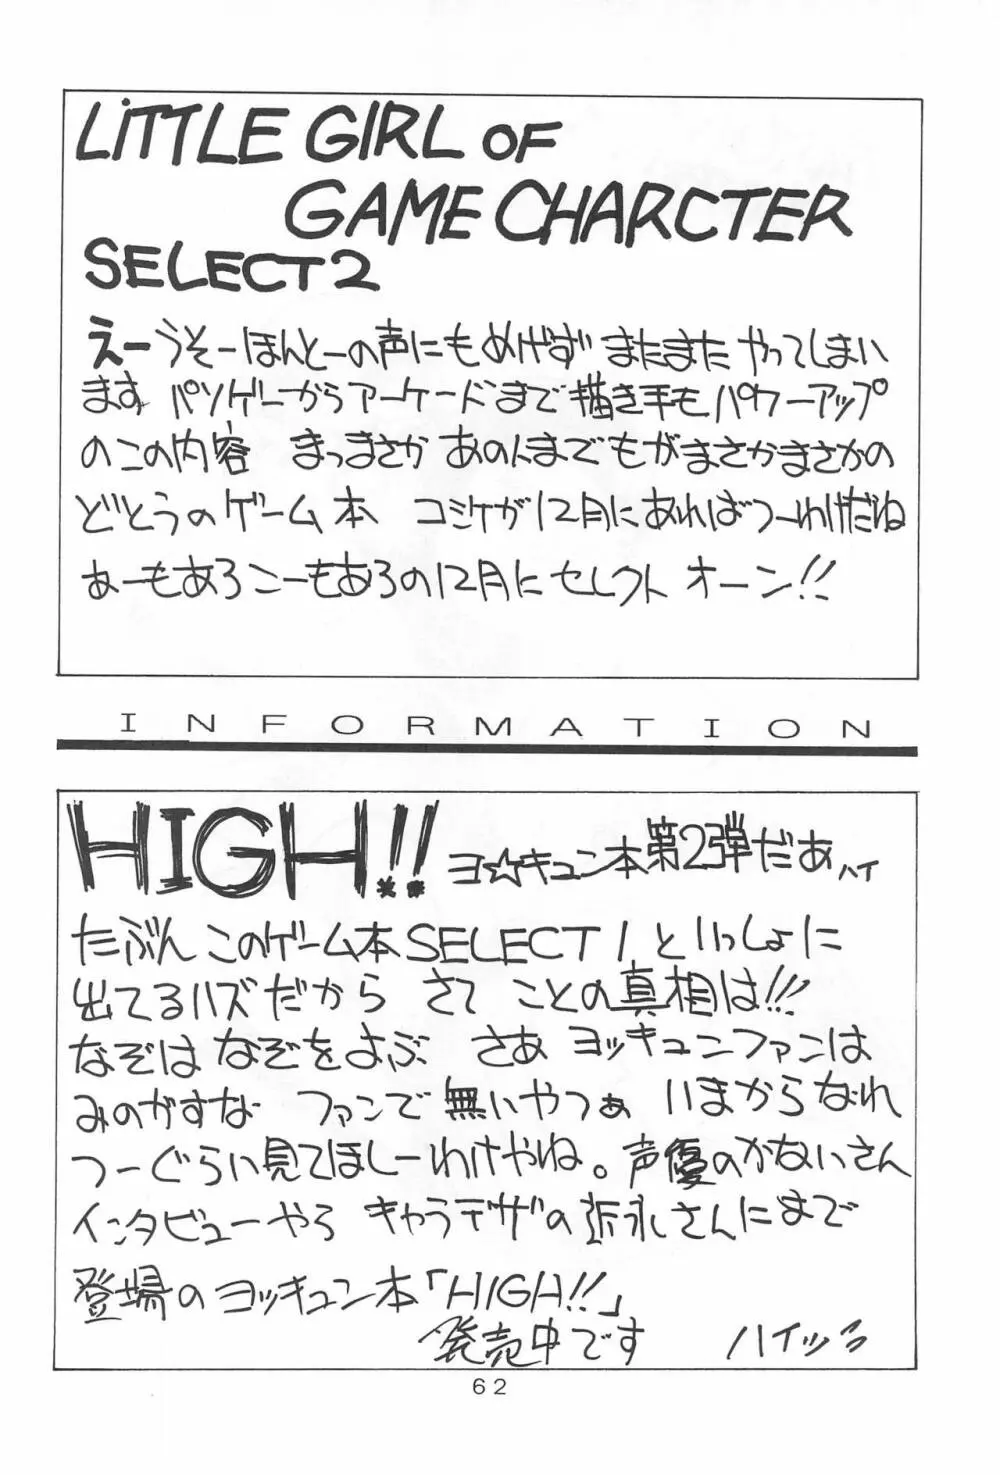 LiTTLE GIRL OF
GAME CHARCTER
SELECT2
えーうそーほんとーの声にもめげず またまた やってしまい
ます パソゲーからアーケードまで描き手もパワーアップ
のこの内容 まっまさか あの人までもがまさかまさかの
どとうのゲーム本 コミケが12月にあればつーわけだね
あーもあろこーもあろの12月にセレクト オーン!!
INFORMATION
HIGH!! ヨ☆キュン本第2弾だあ ハイ
たぶん このゲーム本SELECT1といっしょに
出てるハズだから さて ことの真相は!!!
なぞは なぞをよぶ さあ ヨッキュンファンは
みのがすな ファンで無いやつぁ いまからなれ
つーぐらい見てほしーわけやね。声優のかないさん
インタビューやら キャラデザの 永さんにまで
登場のヨッキュン本「HIGH!!」
発売中です ハイッ
62